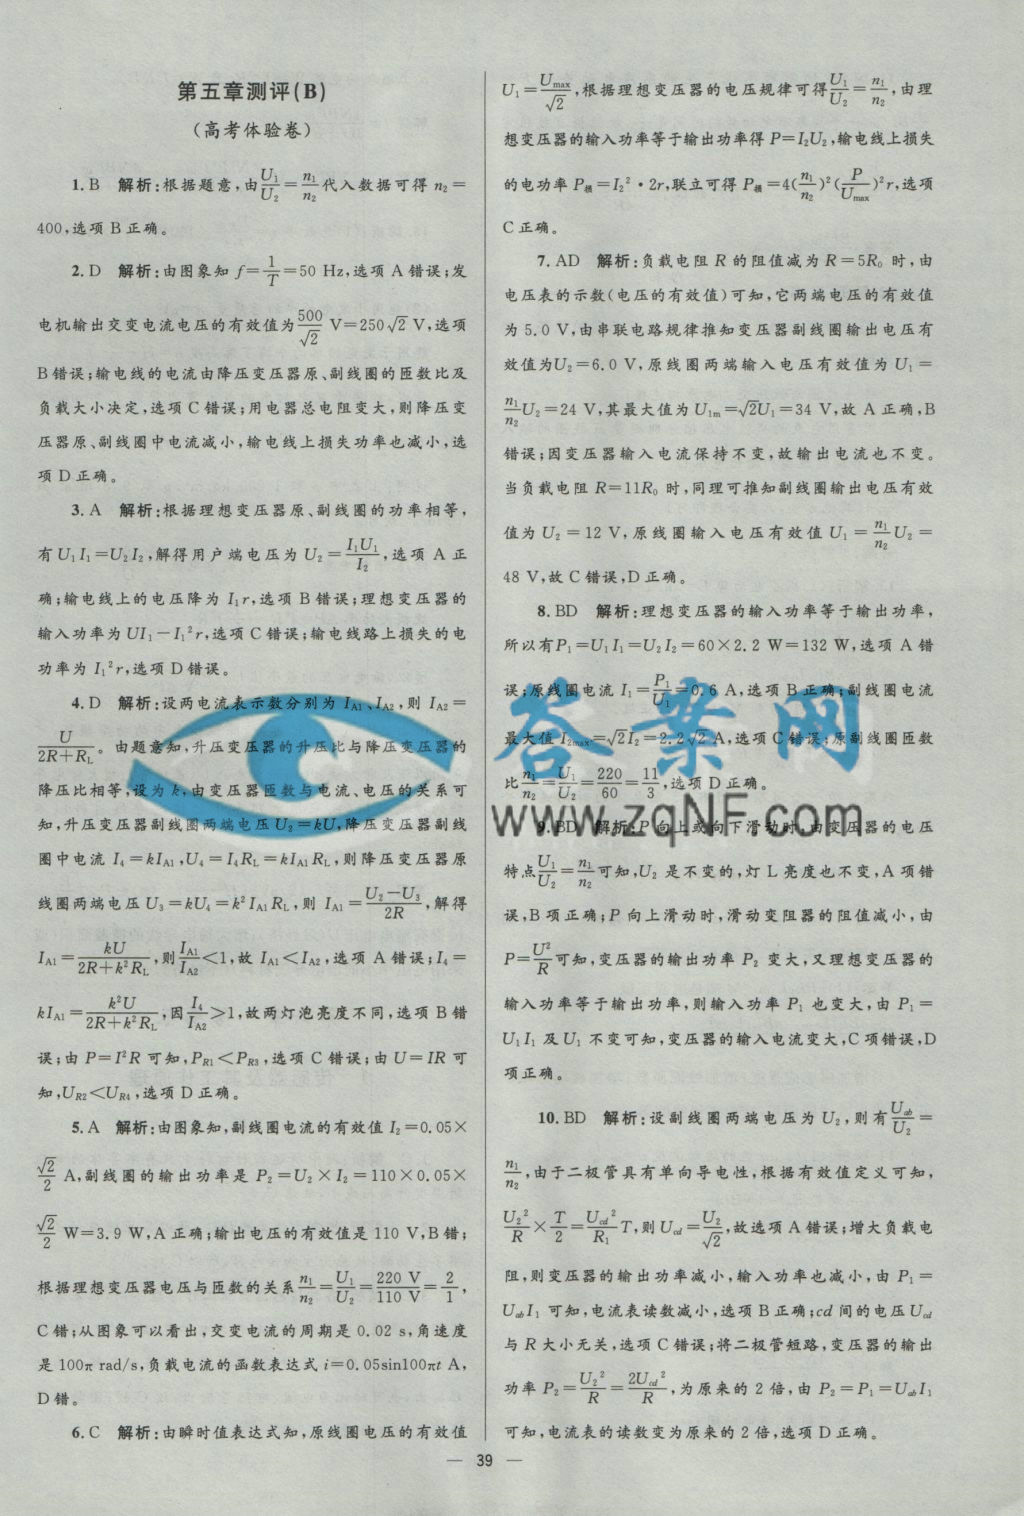 第五章测评(B)
(高考体验卷)
1. B 解析:根据题意,由U₁/U₂=n₁/n₂代入数据可得 n₂=
400,选项 B 正确。
2. D 解析:由图象知 f=1/T=50 Hz,选项 A 错误;发
电机输出交变电流电压的有效值为500/√2 V=250√2 V,选项
B 错误;输电线的电流由降压变压器原、副线圈的匝数比及
负载大小决定,选项 C 错误;用电器总电阻变大,则降压变
压器原、副线圈中电流减小,输电线上损失功率也减小,选
项 D 正确。
3. A 解析:根据理想变压器原、副线圈的功率相等,
有 U₁I₁=U₂I₂,解得用户端电压为 U₂=I₁U₁/I₂,选项 A 正
确;输电线上的电压降为 I₁r,选项 B 错误;理想变压器的
输入功率为 UI₁-I₁²r,选项 C 错误;输电线路上损失的电
功率为 I₁²r,选项 D 错误。
4. D 解析:设两电流表示数分别为 I_A1、I_A2,则 I_A2=
U/(2R+R_L)。由题意知,升压变压器的升压比与降压变压器的
降压比相等,设为 k,由变压器匝数与电流、电压的关系可
知,升压变压器副线圈两端电压 U₂=kU,降压变压器副线
圈中电流 I₄=kI_A1,U₄=I₄R_L=kI_A1R_L,则降压变压器原
线圈两端电压 U₃=kU₄=k²I_A1R_L,则 I_A1=(U₂-U₃)/2R,解得
I_A1=kU/(2R+k²R_L),则I_A1/I_A2<1,故 I_A1<I_A2,选项 A 错误;I₄=
kI_A1=k²U/(2R+k²R_L),因I₄/I_A2>1,故两灯泡亮度不同,选项 B 错
误;由 P=I²R 可知,P_R1<P_R3,选项 C 错误;由 U=IR 可
知,U_R2<U_R4,选项 D 正确。
5. A 解析:由图象知,副线圈电流的有效值 I₂=0.05×
√2/2 A,副线圈的输出功率是 P₂=U₂×I₂=110×0.05×
√2/2 W=3.9 W,A 正确;输出电压的有效值是 110 V,B 错;
根据理想变压器电压与匝数的关系n₁/n₂=U₁/U₂=220 V/110 V=2/1,
C 错;从图象可以看出,交变电流的周期是 0.02 s,角速度
是 100π rad/s,负载电流的函数表达式 i=0.05sin100πt A,
D 错。
6. C 解析:由瞬时值表达式知,原线圈电压的有效值
U₁=U_max/√2,根据理想变压器的电压规律可得U₁/U₂=n₁/n₂,由理
想变压器的输入功率等于输出功率得 P=I₂U₂,输电线上损失
的电功率 P损=I₂²·2r,联立可得 P损=4(n₁/n₂)²(P/U_max)²r,选项
C 正确。
7. AD 解析:负载电阻 R 的阻值减为 R=5R₀ 时,由
电压表的示数(电压的有效值)可知,它两端电压的有效值
为 5.0 V,由串联电路规律推知变压器副线圈输出电压有
效值为U₂=6.0 V,原线圈两端输入电压有效值为 U₁=
n₁/n₂U₂=24 V,其最大值为 U₁m=√2U₁=34 V,故 A 正确,B
错误;因变压器输入电流保持不变,故输出电流也不变。
当负载电阻 R=11R₀ 时,同理可推知副线圈输出电压有效
值为 U₂=12 V,原线圈输入电压有效值 U₁=n₁/n₂U₂=
48 V,故 C 错误,D 正确。
8. BD 解析:理想变压器的输入功率等于输出功率,
所以有P₁=U₁I₁=U₂I₂=60×2.2 W=132 W,选项 A 错
误;原线圈电流 I₁=P₁/U₁=0.6 A,选项 B 正确;副线圈电流
最大值 I₂max=√2I₂=2.2√2 A,选项 C 错误;原副线圈匝数
比n₁/n₂=U₁/U₂=220/60=11/3,选项 D 正确。
9. BD 解析:P 向上或向下滑动时,由变压器的电压
特点U₁/U₂=n₁/n₂可知,U₂ 是不变的,灯 L 亮度也不变,A 项错
误,B 项正确;P 向上滑动时,滑动变阻器的阻值减小,由
P=U²/R可知,变压器的输出功率 P₂ 变大,又理想变压器的
输入功率等于输出功率,则输入功率 P₁ 也变大,由 P₁=
U₁I₁ 及 U₁ 不变可知,变压器的输入电流变大,C 项错误,D
项正确。
10. BD 解析:设副线圈两端电压为 U₂,则有U_ab/U₂=
n₁/n₂,由于二极管具有单向导电性,根据有效值定义可知,
U₂²/R×T/2=U_cd²/R₁T,则 U_cd=U₂/√2,故选项 A 错误;增大负载电
阻,则变压器的输出功率减小,输入功率也减小,由 P₁=
U_abI₁ 可知,电流表读数减小,选项 B 正确;cd 间的电压 U_cd
与 R 大小无关,选项 C 错误;将二极管短路,变压器的输出
功率 P₂=U₂²/R=2U_cd²/R,为原来的 2 倍,由 P₂=P₁=U_abI₁
可知,电流表的读数变为原来的 2 倍,选项 D 正确。
答案网
www.zqNF.com
— 39 —